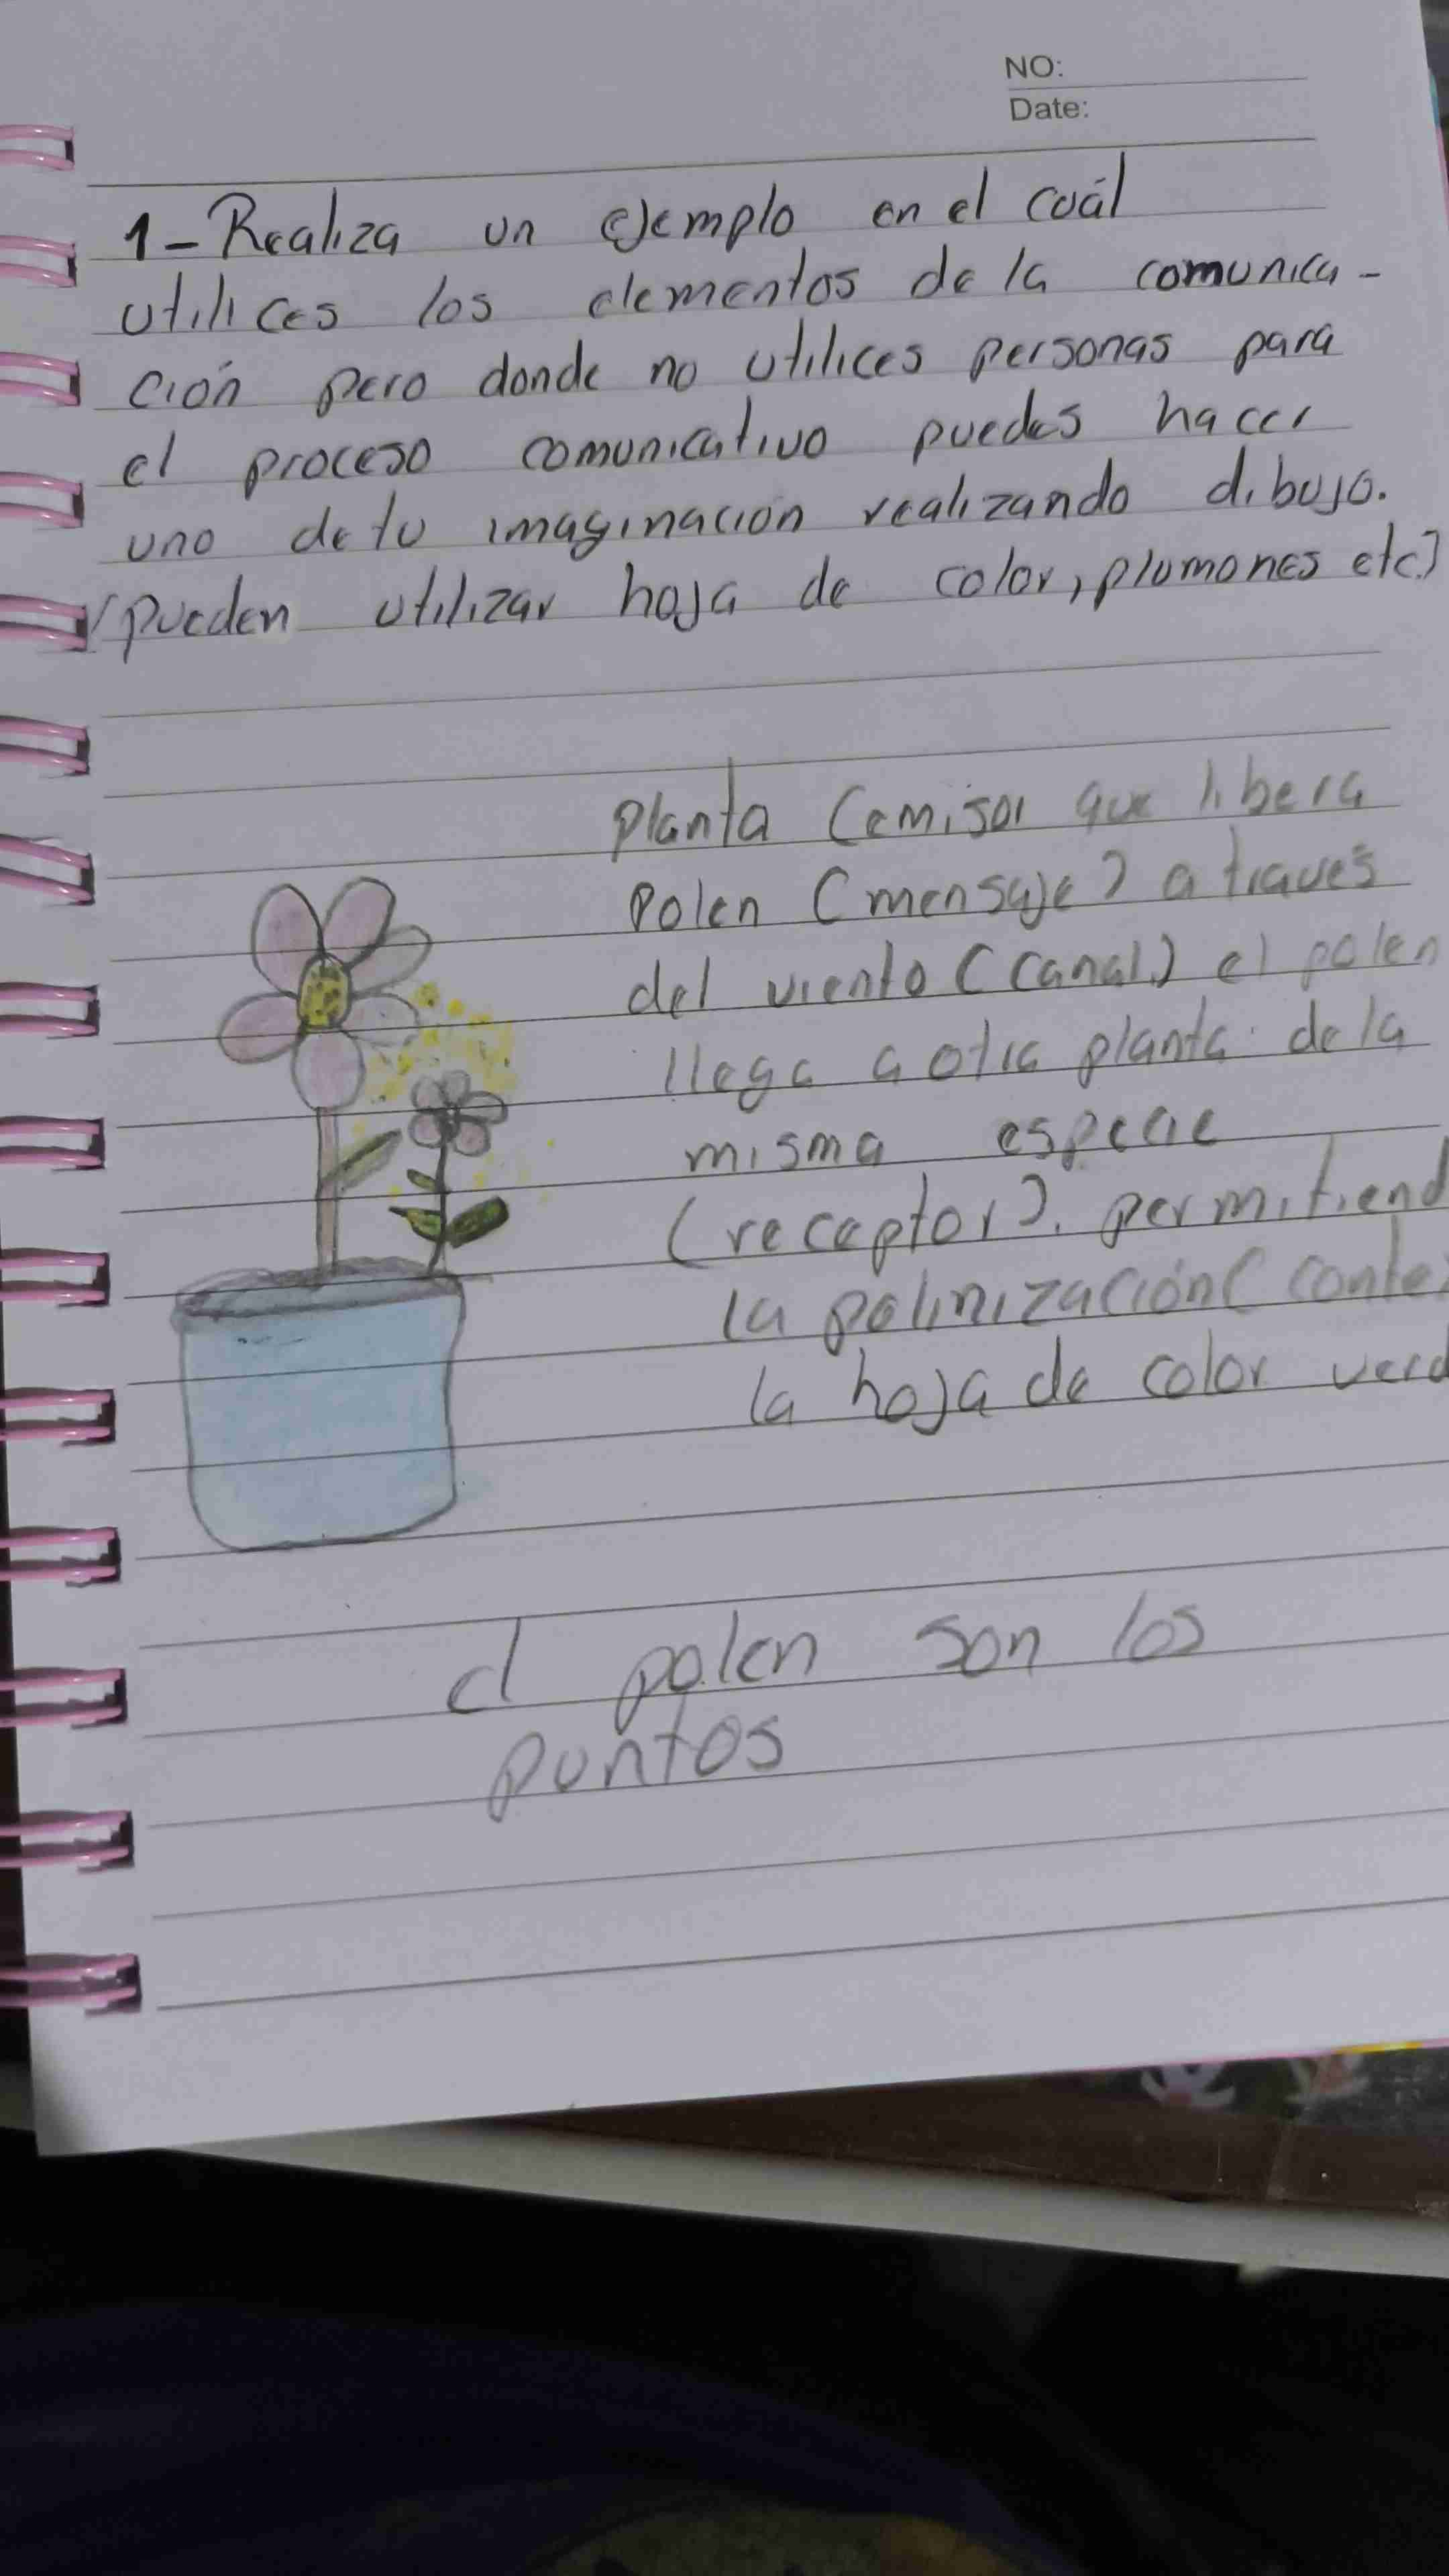 NO:
Date:
1- Realiza un ejemplo en el cuál
utilices los elementos de la comunica-
ción pero donde no utilices personas para
el proceso comunicativo puedes hacer
uno de tu imaginación realizando dibujo.
(pueden utilizar hoja de color, plumones etc)
planta (emisor que libera
polen (mensaje) a traves
del viento (canal) el polen
llega a otra planta de la
misma especie
(receptor). permitiend
la polinización (conte
la hoja de color verd
el polen son los
puntos